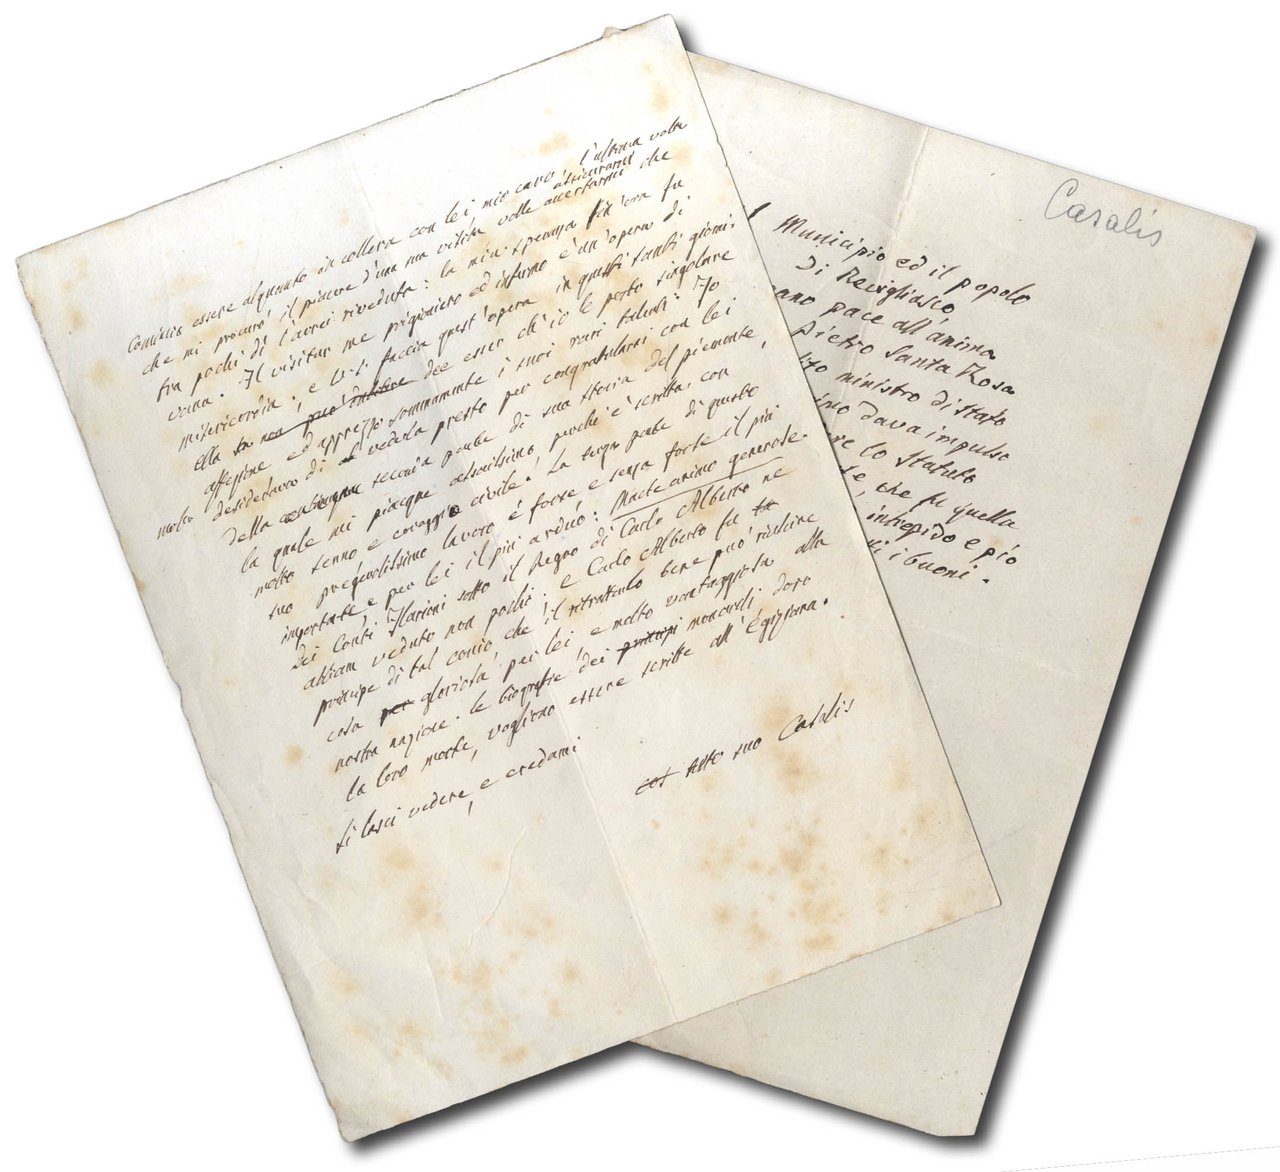 Comincio essere alquanto in collera con lei, mio caro: l'ultima volta
che mi procurò il piacere d'una sua visita volle accertarmi assicurarmi che
fra pochi dì l'avrei riveduta: la mia speranza fin'ora fu
vana. Il visitar me prigioniero ed infermo è un'opera di
misericordia; e V. S. faccia quest'opera in questi santi giorni.
Ella non può dee esser ch'io le porto singolare
affezione ed apprezzo sommamente i suoi rari talenti. Io
molto desiderava di vederla presto per congratularmi con lei
della seconda parte di sua storia del piemonte,
la quale mi piacque assaissimo perchè è scritta con
molto senno e coraggio civile. La terza parte di questo
suo pregevolissimo lavoro è forse e senza forse il più
importante, e per lei il più arduo: Macte animo generose.
Dei Conti Ilarioni sotto il Regno di Carlo Alberto ne
abbiam veduto non pochi: e Carlo Alberto fu
principe di tal conio, che il ritrattarlo bene può riuscire
cosa per gloriosa per lei, e molto vantaggiosa alla
nostra nazione. Le biografie dei principi monarchi dopo
la loro morte, vogliono essere scritte all'Egiziana.
Si lasci vedere, e credami
tutto suo Casalis
Casalis
Municipio ed il popolo
Di Revigliasco
pace all'anima
Pietro Santa Rosa
ministro di stato
dava impulso
lo Statuto
che fu quella
intrepido e pio
i buoni.